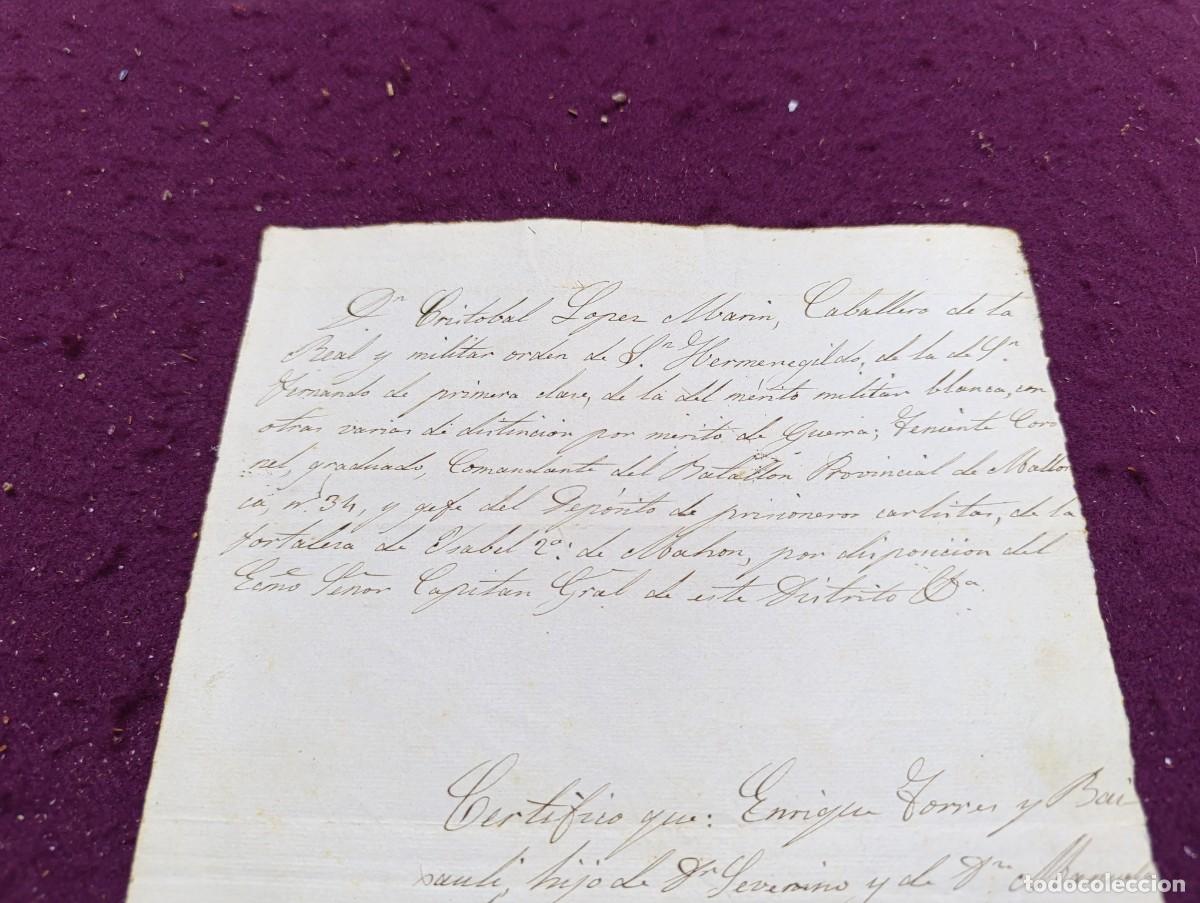 Dn Cristobal Lopez Marin, Caballero de la
Real y militar orden de Sn. Hermenegildo, de la de Sn.
Fernando de primera clase, de la del mérito militar blanca, con
otras varias de distincion por merito de Guerra; Teniente Coro
nel, graduado, Comandante del Batallon Provincial de Mallor
ca, nº. 34, y gefe del Depósito de prisioneros carlistas, de la
fortaleza de Isabel 2ª. de Mahon, por disposicion del
Ecmo Señor Capitan Gral de este Distrito &a.
Certifico que: Enrique Torres y Bai
sauli, hijo de Dn Severino y de Dña Manuela
todocoleccion